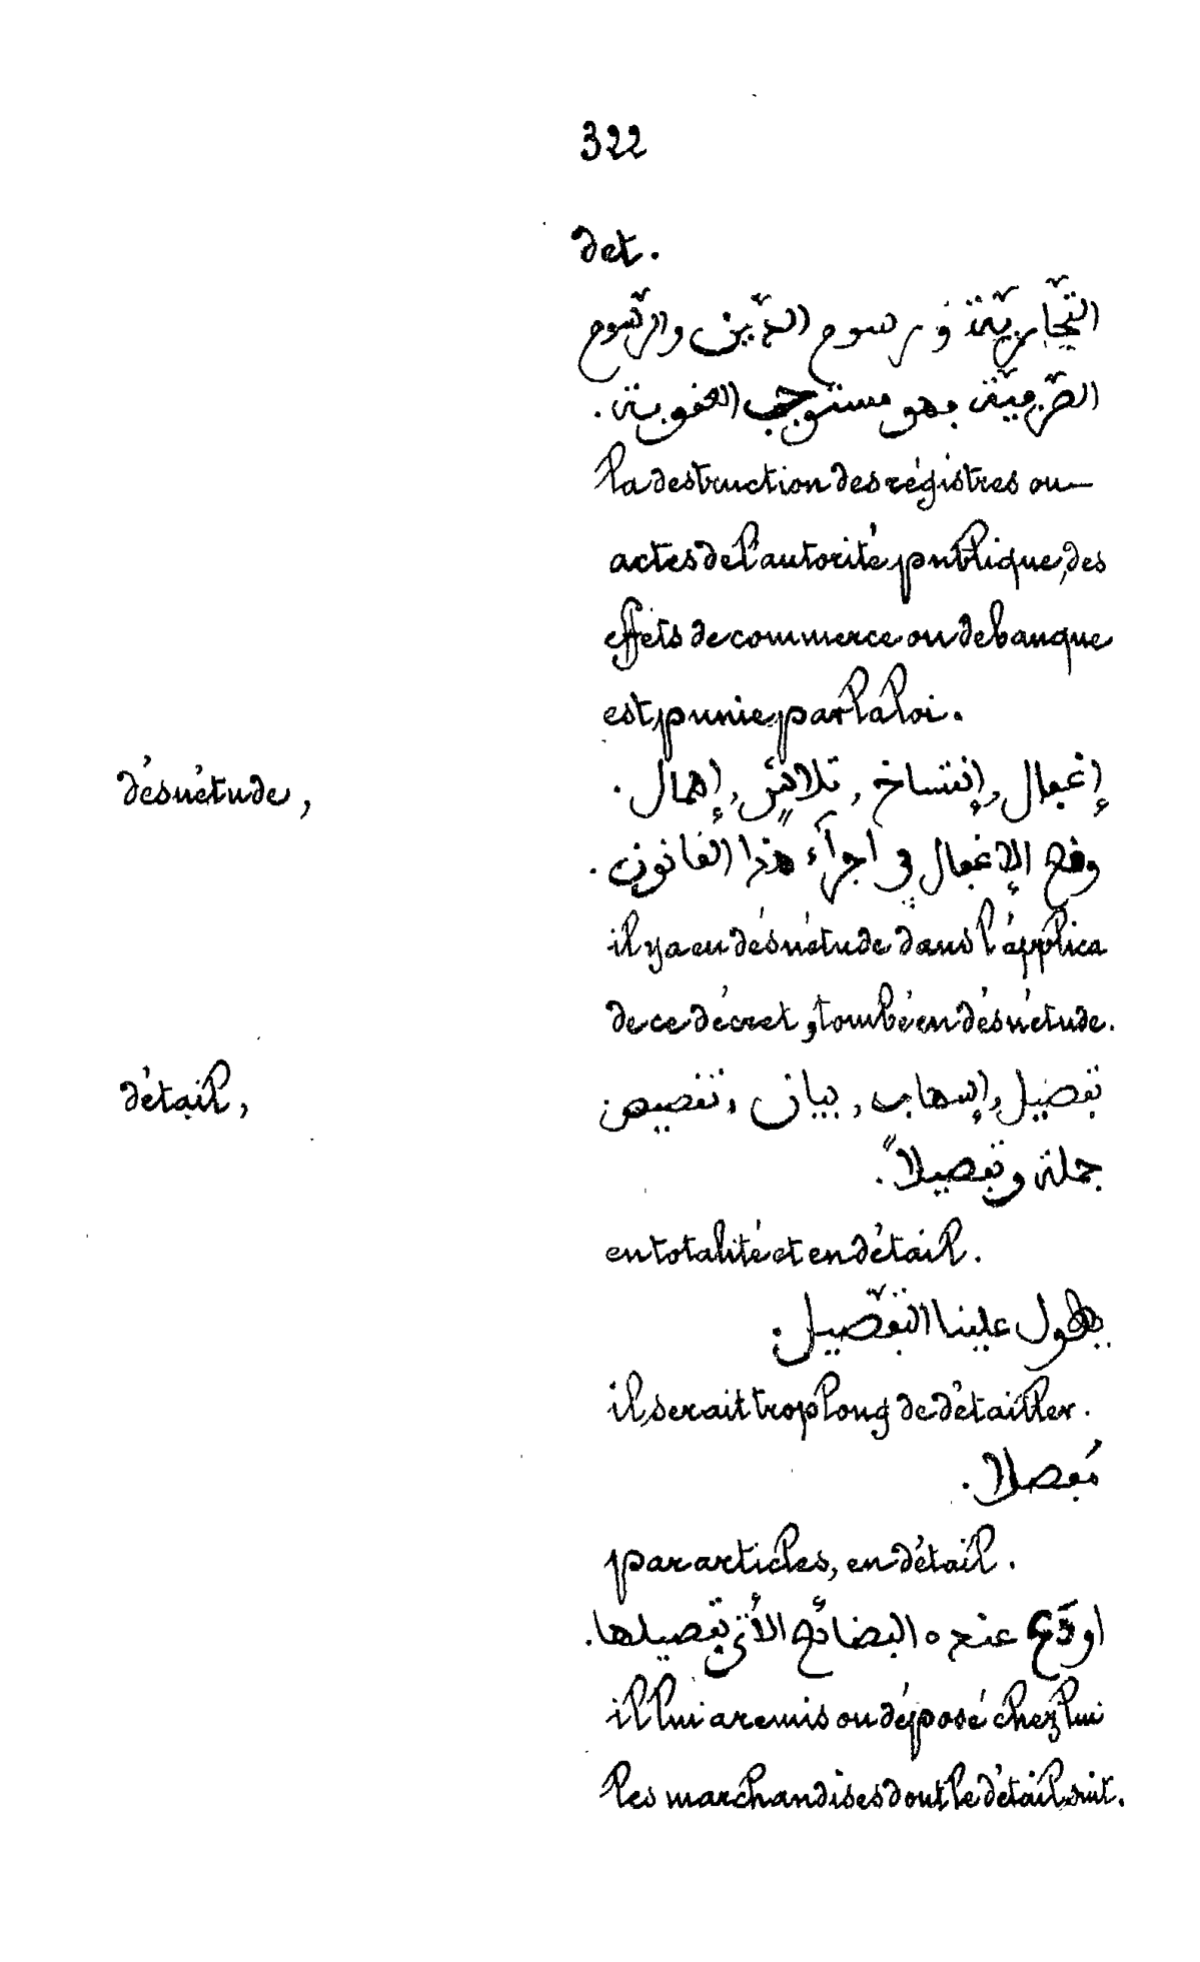 322
det.
التّجاريّة و رسوم الدّين والرّسوم
الصّرفيّة فهو مستوجب العقوبة.
la destruction des régistres ou
actes de l'autorité publique, des
effets de commerce ou de banque
est punie par la loi.
désuétude, إغفال, إنتساخ, تلاشٍ, إهمال.
وقع الإغفال في اجرآء هذا القانون.
il y a eu désuétude dans l'applica
de ce décret, tombé en désuétude.
détail, تفصيل, إسهاب, بيان, تفصيص
جملة وتفصيلاً.
en totalité et en détail.
يطول علينا التّفصيل.
il serait trop long de détailler.
مُفصلا.
par articles, en détail.
اودَع عنده البضائع الأتى تفصيلها.
il lui a remis ou déposé chez lui
les marchandises dont le détail suit.